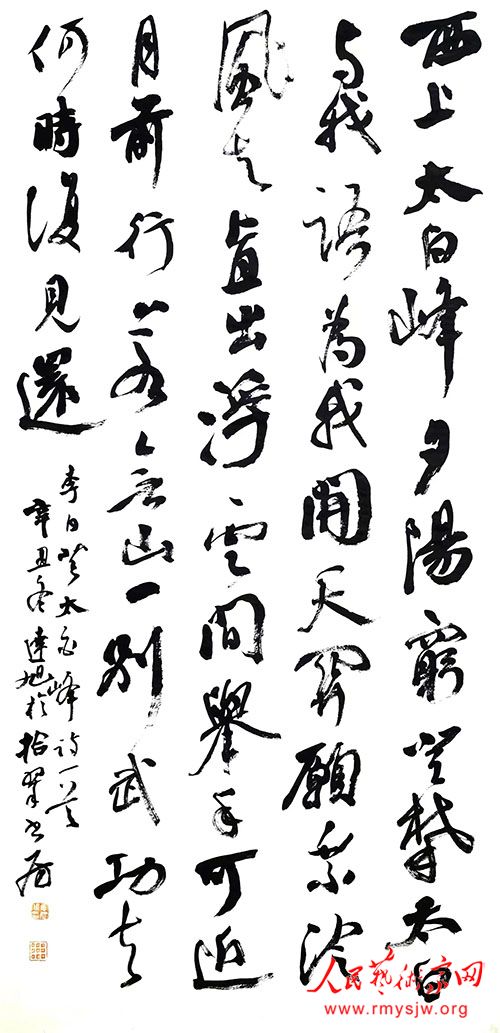 西上太白峰夕陽窮登攀太白
与我語為我開天関願乘泠
風去直出浮雲間舉手可近
月前行若无山一別武功去
何時復見還
李白登太白峰詩一首
辛丑冬達旭於拾翠書屋
人民藝術家网
www.rmysjw.org